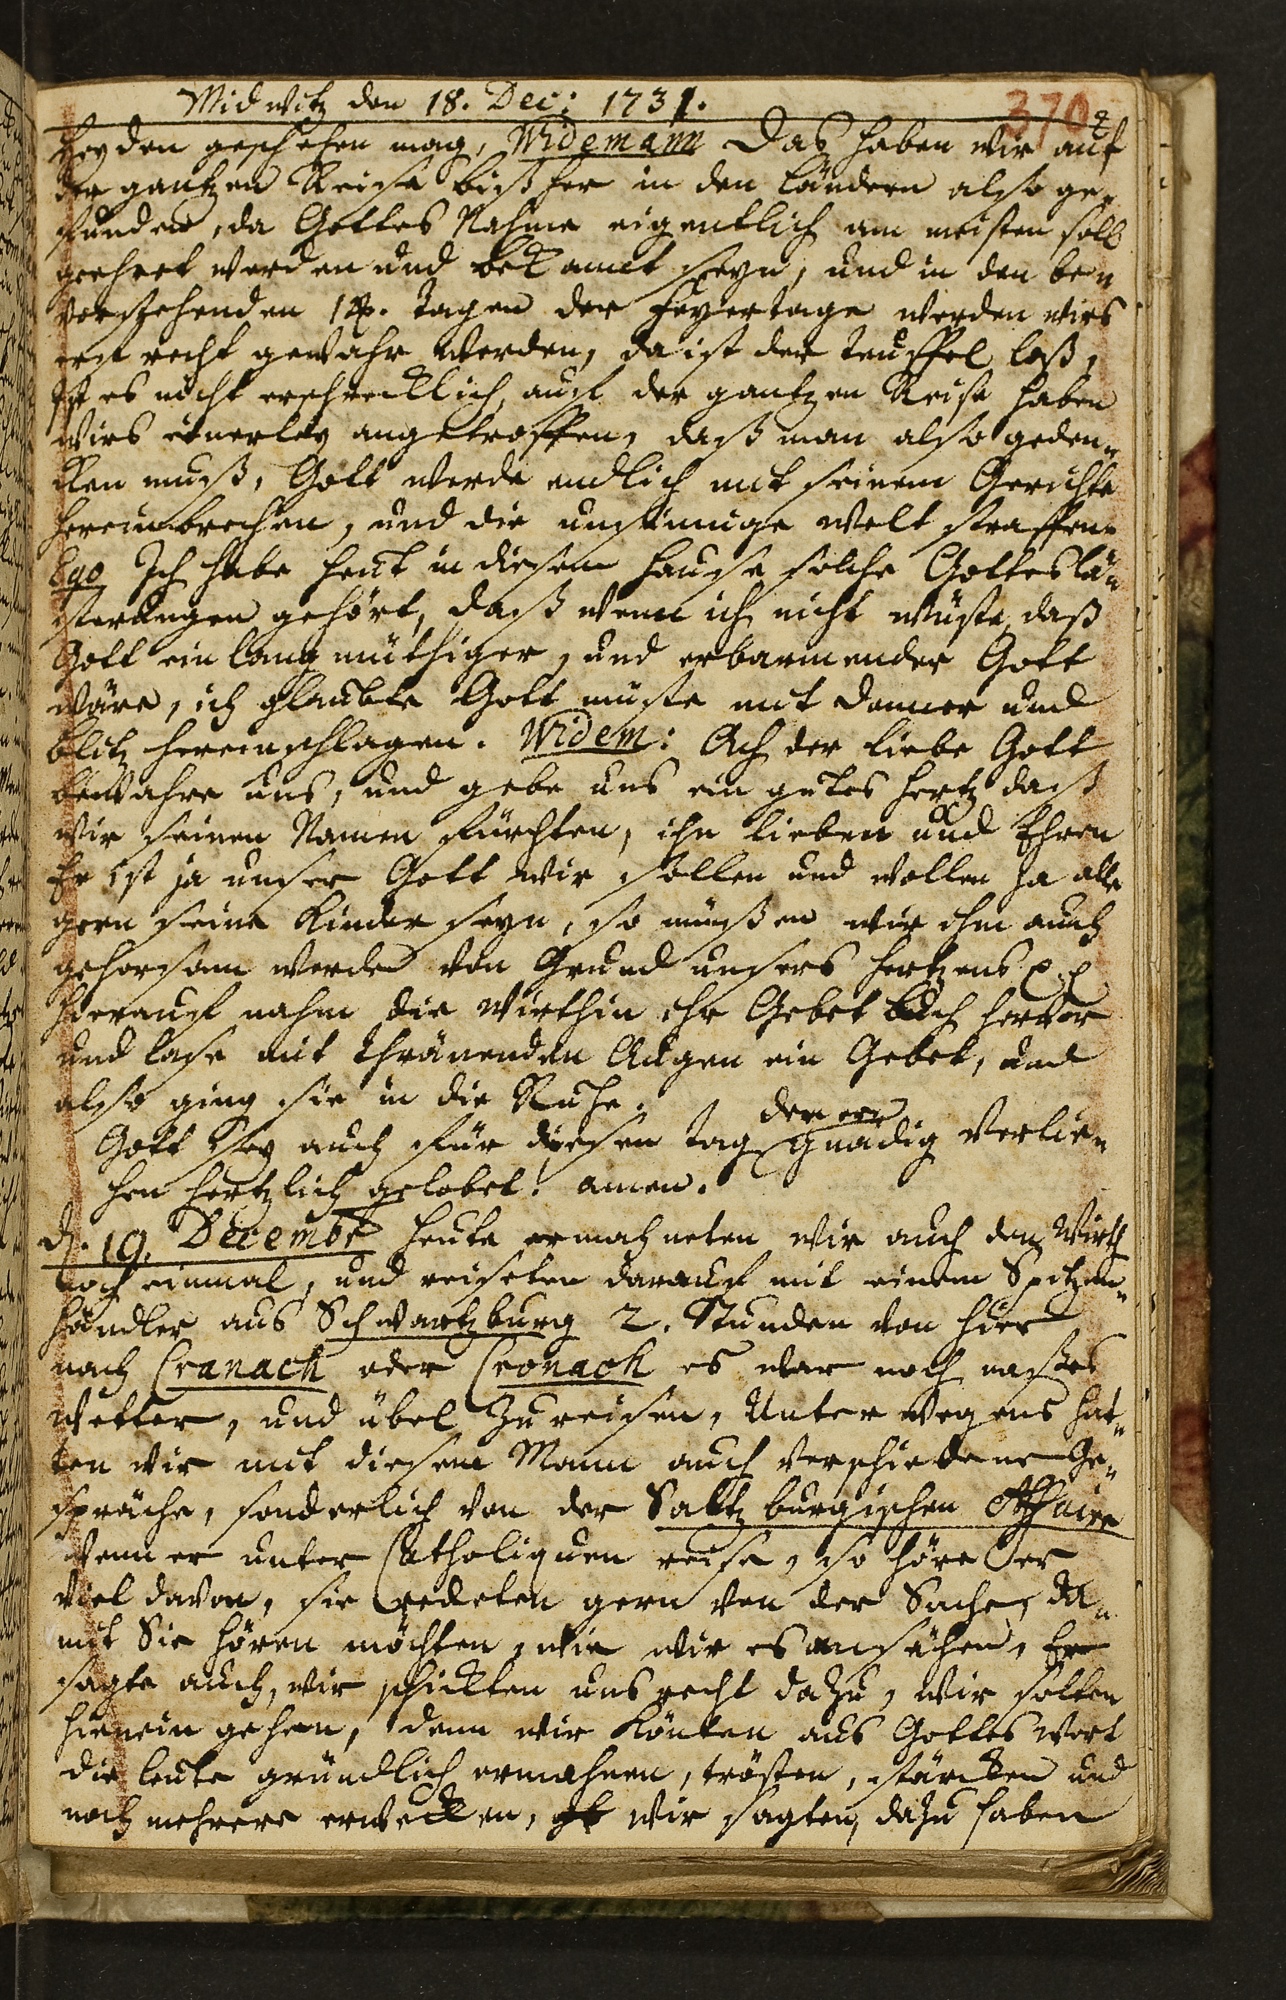 Midwitz den 18. Dec: 1731.
370
Heyden geschehen mag, Widemann Das haben wir auf
der gantzen Reise bißher in den Ländern also ge„
funden, da Gottes Nahme eigentlich am meisten soll
geehret werden und bekannt seyn, und in den be„
vorstehenden 14. Tagen der Feyertage werden wirs
erst recht gewahr werden, da ist der Teuffel loß,
Ist es nicht erschrecklich, auf der gantzen Reise haben
wirs einerley angetroffen, daß man also geden„
cken muß, Gott werde endlich mit seinem Gerichte
hereinbrechen, und die unsinnige Welt straffen„
Ego Ich habe heut in diesem Hause solche Gotteslä„
sterungen gehört, daß wenn ich nicht wüste, daß
Gott ein langmüthiger, und erbarmender Gott
wäre, ich glaubte Gott müste mit Donner und
Blitz hereinschlagen. Widem: Ach der liebe Gott
bewahre uns, und gebe uns ein gutes Hertz daß
wir seinen Namen fürchten, ihn lieben und Ehren
Er ist ja unser Gott wir sollen und wollen ja alle
gern seine Kinder seyn, so müßen wir ihm auch
gehorsam werden von Grund unsers Hertzens
Hierauf nahm die Wirthin ihr Gebet buch hervor
und lase mit thränenden Augen ein Gebet, und
also ging sie in die Ruhe.
Gott sey auch für diesen Tag den er gnädig verlie„
hen hertzlich gelobet! amen.
d. 19. Decembr heute ermahneten wir auch den Wirth
noch einmal, und reiseten darauf mit einem Spitzen„
händler aus Schwartzburg 2. Stunden von hier
nach Cranach oder Cronach es war noch naßes
Wetter, und übel zu reisen, Unter wegens hat„
ten wir mit diesem Mann auch verschiedene Ge„
spräche, sonderlich von der Saltzburgischen Affaire
Wenn er unter Catholiquen reise, so höre er
viel davon, sie redeten gern von der Sache, da„
mit Sie hören möchten, wie wir es ansähen, Er
sagte auch, wir schickten uns recht dazu, wir solten
hinein gehen, denn wir könten aus Gottes wort
die leute gründlich ermahnen, trösten, stärcken und
noch mehrere erwecken, wir sagten, dazu haben